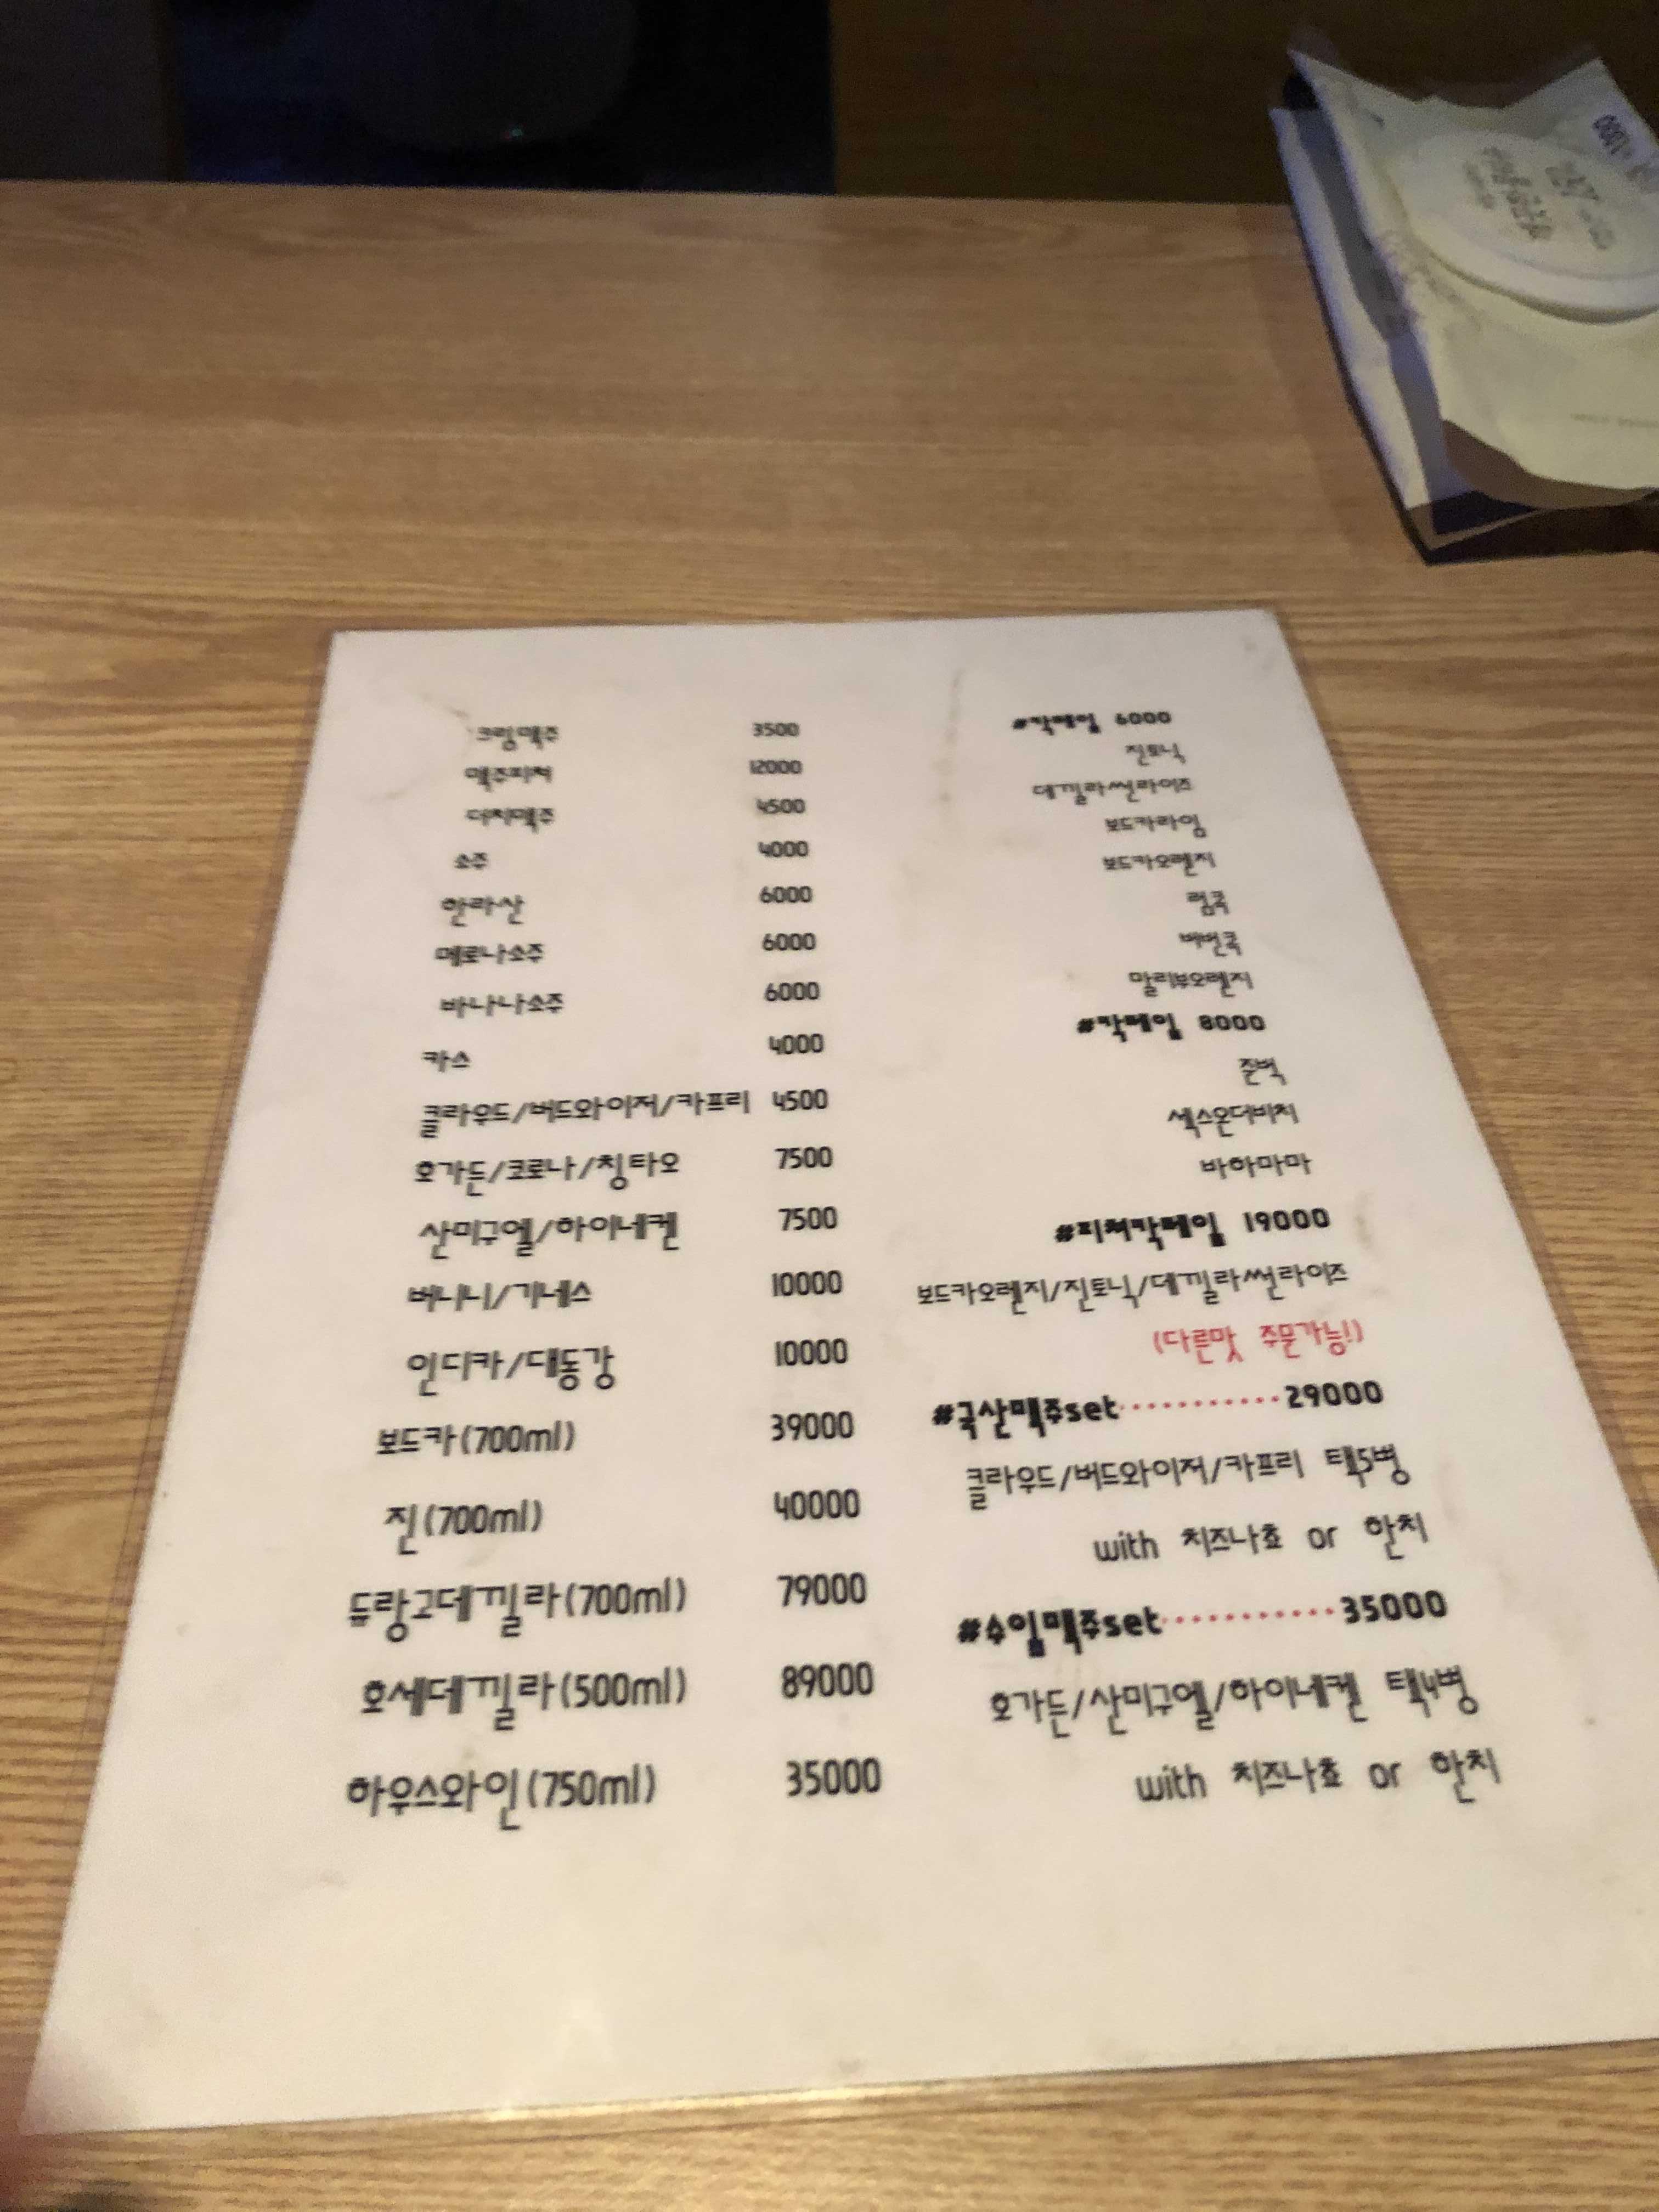 크림맥주 3500
맥주피쳐 12000
더치맥주 4500
소주 4000
한라산 6000
메로나소주 6000
바나나소주 6000
카스 4000
클라우드/버드와이저/카프리 4500
호가든/코로나/칭타오 7500
산미구엘/하이네켄 7500
버니니/기네스 10000
인디카/대동강 10000
보드카(700ml) 39000
진(700ml) 40000
듀랑고데낄라(700ml) 79000
호세데낄라(500ml) 89000
하우스와인(750ml) 35000
#칵테일 6000
진토닉
데낄라썬라이즈
보드카라임
보드카오렌지
럼콕
버번콕
말리부오렌지
#칵테일 8000
준벅
섹스온더비치
바하마마
#피쳐칵테일 19000
보드카오렌지/진토닉/데낄라썬라이즈
(다른맛 주문가능!)
#국산맥주set···········29000
클라우드/버드와이저/카프리 택5병
with 치즈나쵸 or 한치
#수입맥주set···········35000
호가든/산미구엘/하이네켄 택4병
with 치즈나쵸 or 한치